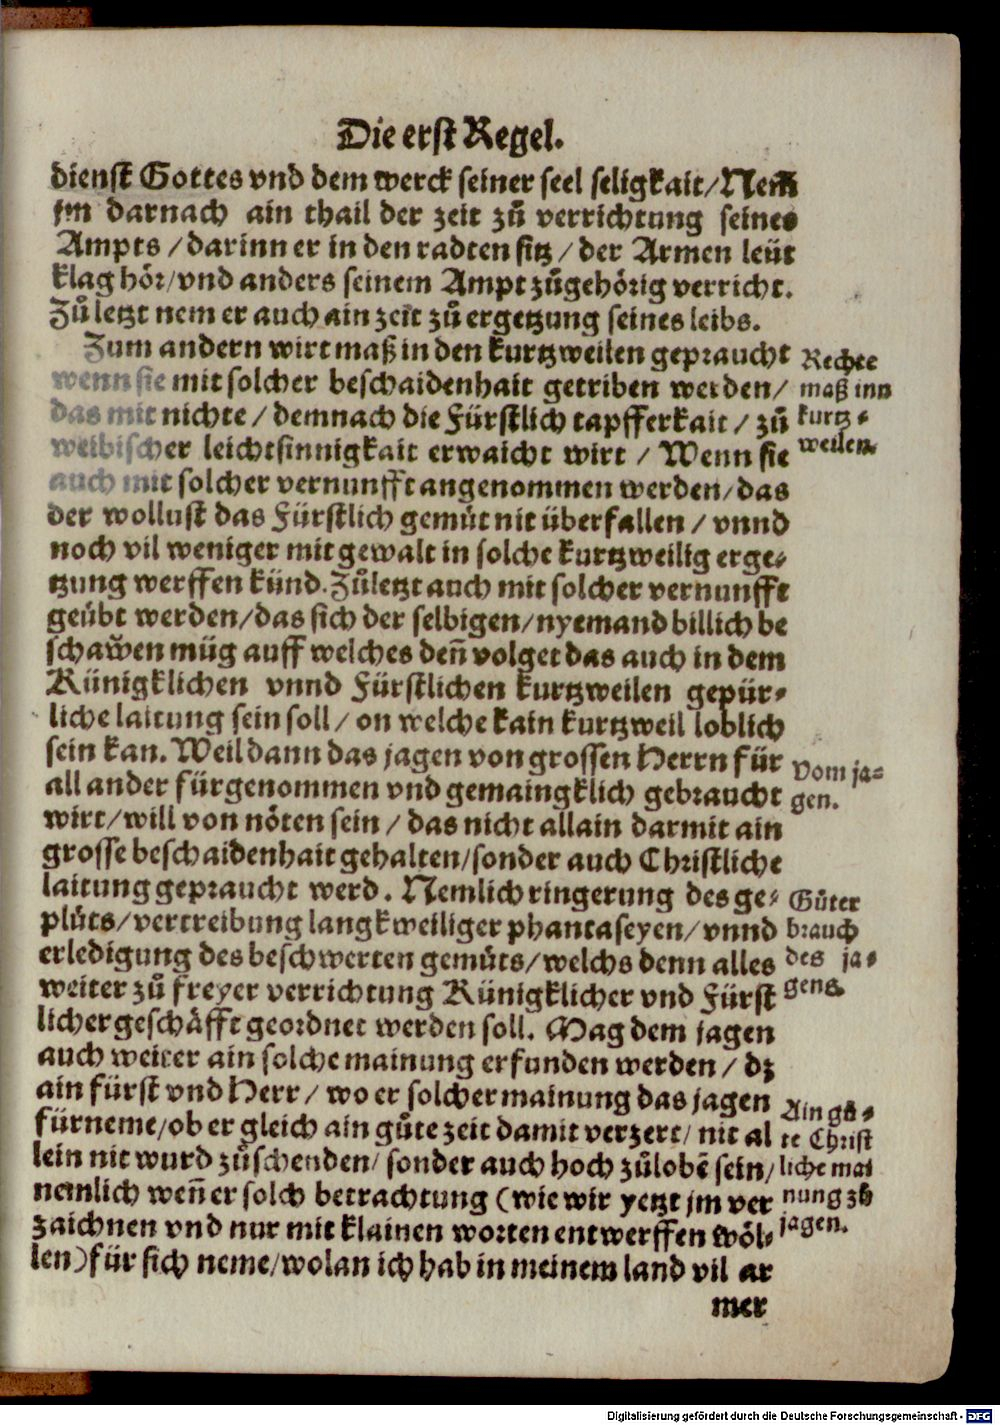 Die erst Regel.
dienst Gottes vnd dem werck seiner seel seligkait/Nem̃
jm darnach ain thail der zeit zů verrichtung seines
Ampts/darinn er in den radten sitz/der Armen leüt
klag hör/vnd anders seinem Ampt zůgehörig verricht.
Zů letzt nem er auch ain zeit zů ergetzung seines leibs.
Zum andern wirt maß in den kurtzweilen gepraucht
wenn sie mit solcher beschaidenhait getriben werden/
das mit nichte/demnach die Fürstlich tapfferkait/zů
weibischer leichtsinnigkait erwaicht wirt/Wenn sie
auch mit solcher vernunfft angenommen werden/das
der wollust das Fürstlich gemüt nit überfallen/vnnd
noch vil weniger mit gewalt in solche kurtzweilig erge-
tzung werffen künd. Zůletzt auch mit solcher vernunfft
geübt werden/das sich der selbigen/nyemand billich be
schawen müg auff welches deñ volget das auch in dem
Künigklichen vnnd Fürstlichen kurtzweilen gepür-
liche laitung sein soll/on welche kain kurtzweil loblich
sein kan. Weil dann das jagen von grossen Herrn für
all ander fürgenommen vnd gemaingklich gebraucht
wirt/will von nöten sein/das nicht allain darmit ain
grosse beschaidenhait gehalten/sonder auch Christliche
laitung gepraucht werd. Nemlich ringerung des ge-
plüts/vertreibung langkweiliger phantaseyen/vnnd
erledigung des beschwerten gemüts/welchs denn alles
weiter zů freyer verrichtung Künigklicher vnd Fürst
licher geschäfft geordnet werden soll. Mag dem jagen
auch weiter ain solche mainung erfunden werden/dz
ain fürst vnd Herr/wo er solcher mainung das jagen
fürneme/ob er gleich ain gůte zeit damit verzert/nit al
lein nit wurd zůschenden/sonder auch hoch zůlobē sein/
nemlich weñ er solch betrachtung (wie wir yetzt jm ver
zaichnen vnd nur mit klainen worten entwerffen wöl-
len) für sich neme/wolan ich hab in meinem land vil ar
mer
Rechte
maß inn
kurtz-
weilen.
Vom ja-
gen.
Gůter
brauch
des ja-
gens.
Ain gů-
te Christ
liche mai
nung zů
jagen.
Digitalisierung gefördert durch die Deutsche Forschungsgemeinschaft - DFG